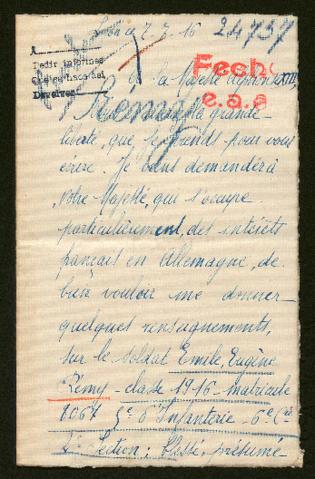 ce 2. 3. 16
24757
A
Pedir informes
Devolver
Fech
e.a.
Remy
A sa Majesté Alphonse XIII,
la grande
liberté, que je prends pour vous
écrire. Je viens demander à
votre Majesté, qui s'occupe
particulièrement, des intérêts
français en Allemagne, de
bien vouloir me donner
quelques renseignements,
sur le soldat Emile, Eugène
Rémy - classe 1916 - matricule
8067 d'Infanterie - 6e Cie
2e Section; blessé, présumé